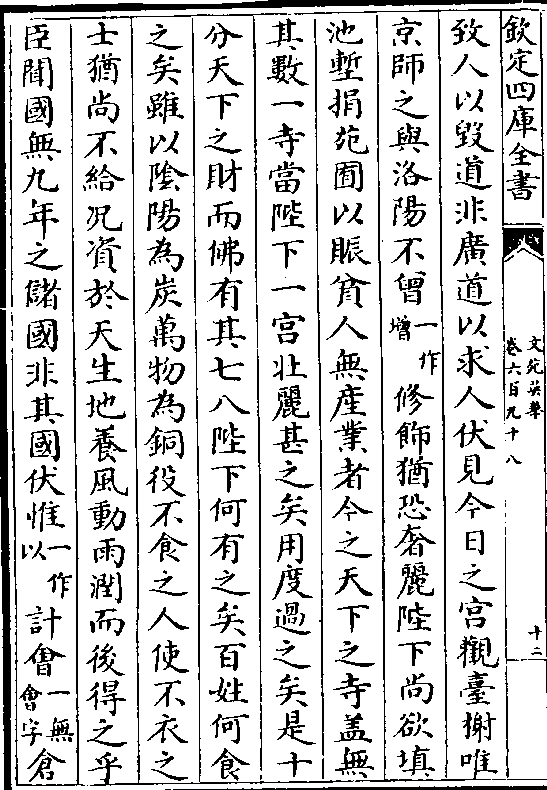 欽定四庫全書
文苑英華
卷六百九十八
十二
致人以毀道非廣道以求人伏見今日之宮觀臺榭唯
京師之與洛陽不曾一作增修飾猶恐奢麗陛下尚欲填
池壍捐苑囿以賑貧人無産業者今之天下之寺盖無
其數一寺當陛下一宫壯麗甚之矣用度過之矣是十
分天下之財而佛有其七八陛下何有之矣百姓何食
之矣雖以陰陽為炭萬物為銅役不食之人使不衣之
士猶尚不給况資於天生地養風動雨潤而後得之乎
臣聞國無九年之儲國非其國伏惟一作以計㑹一無㑹字倉